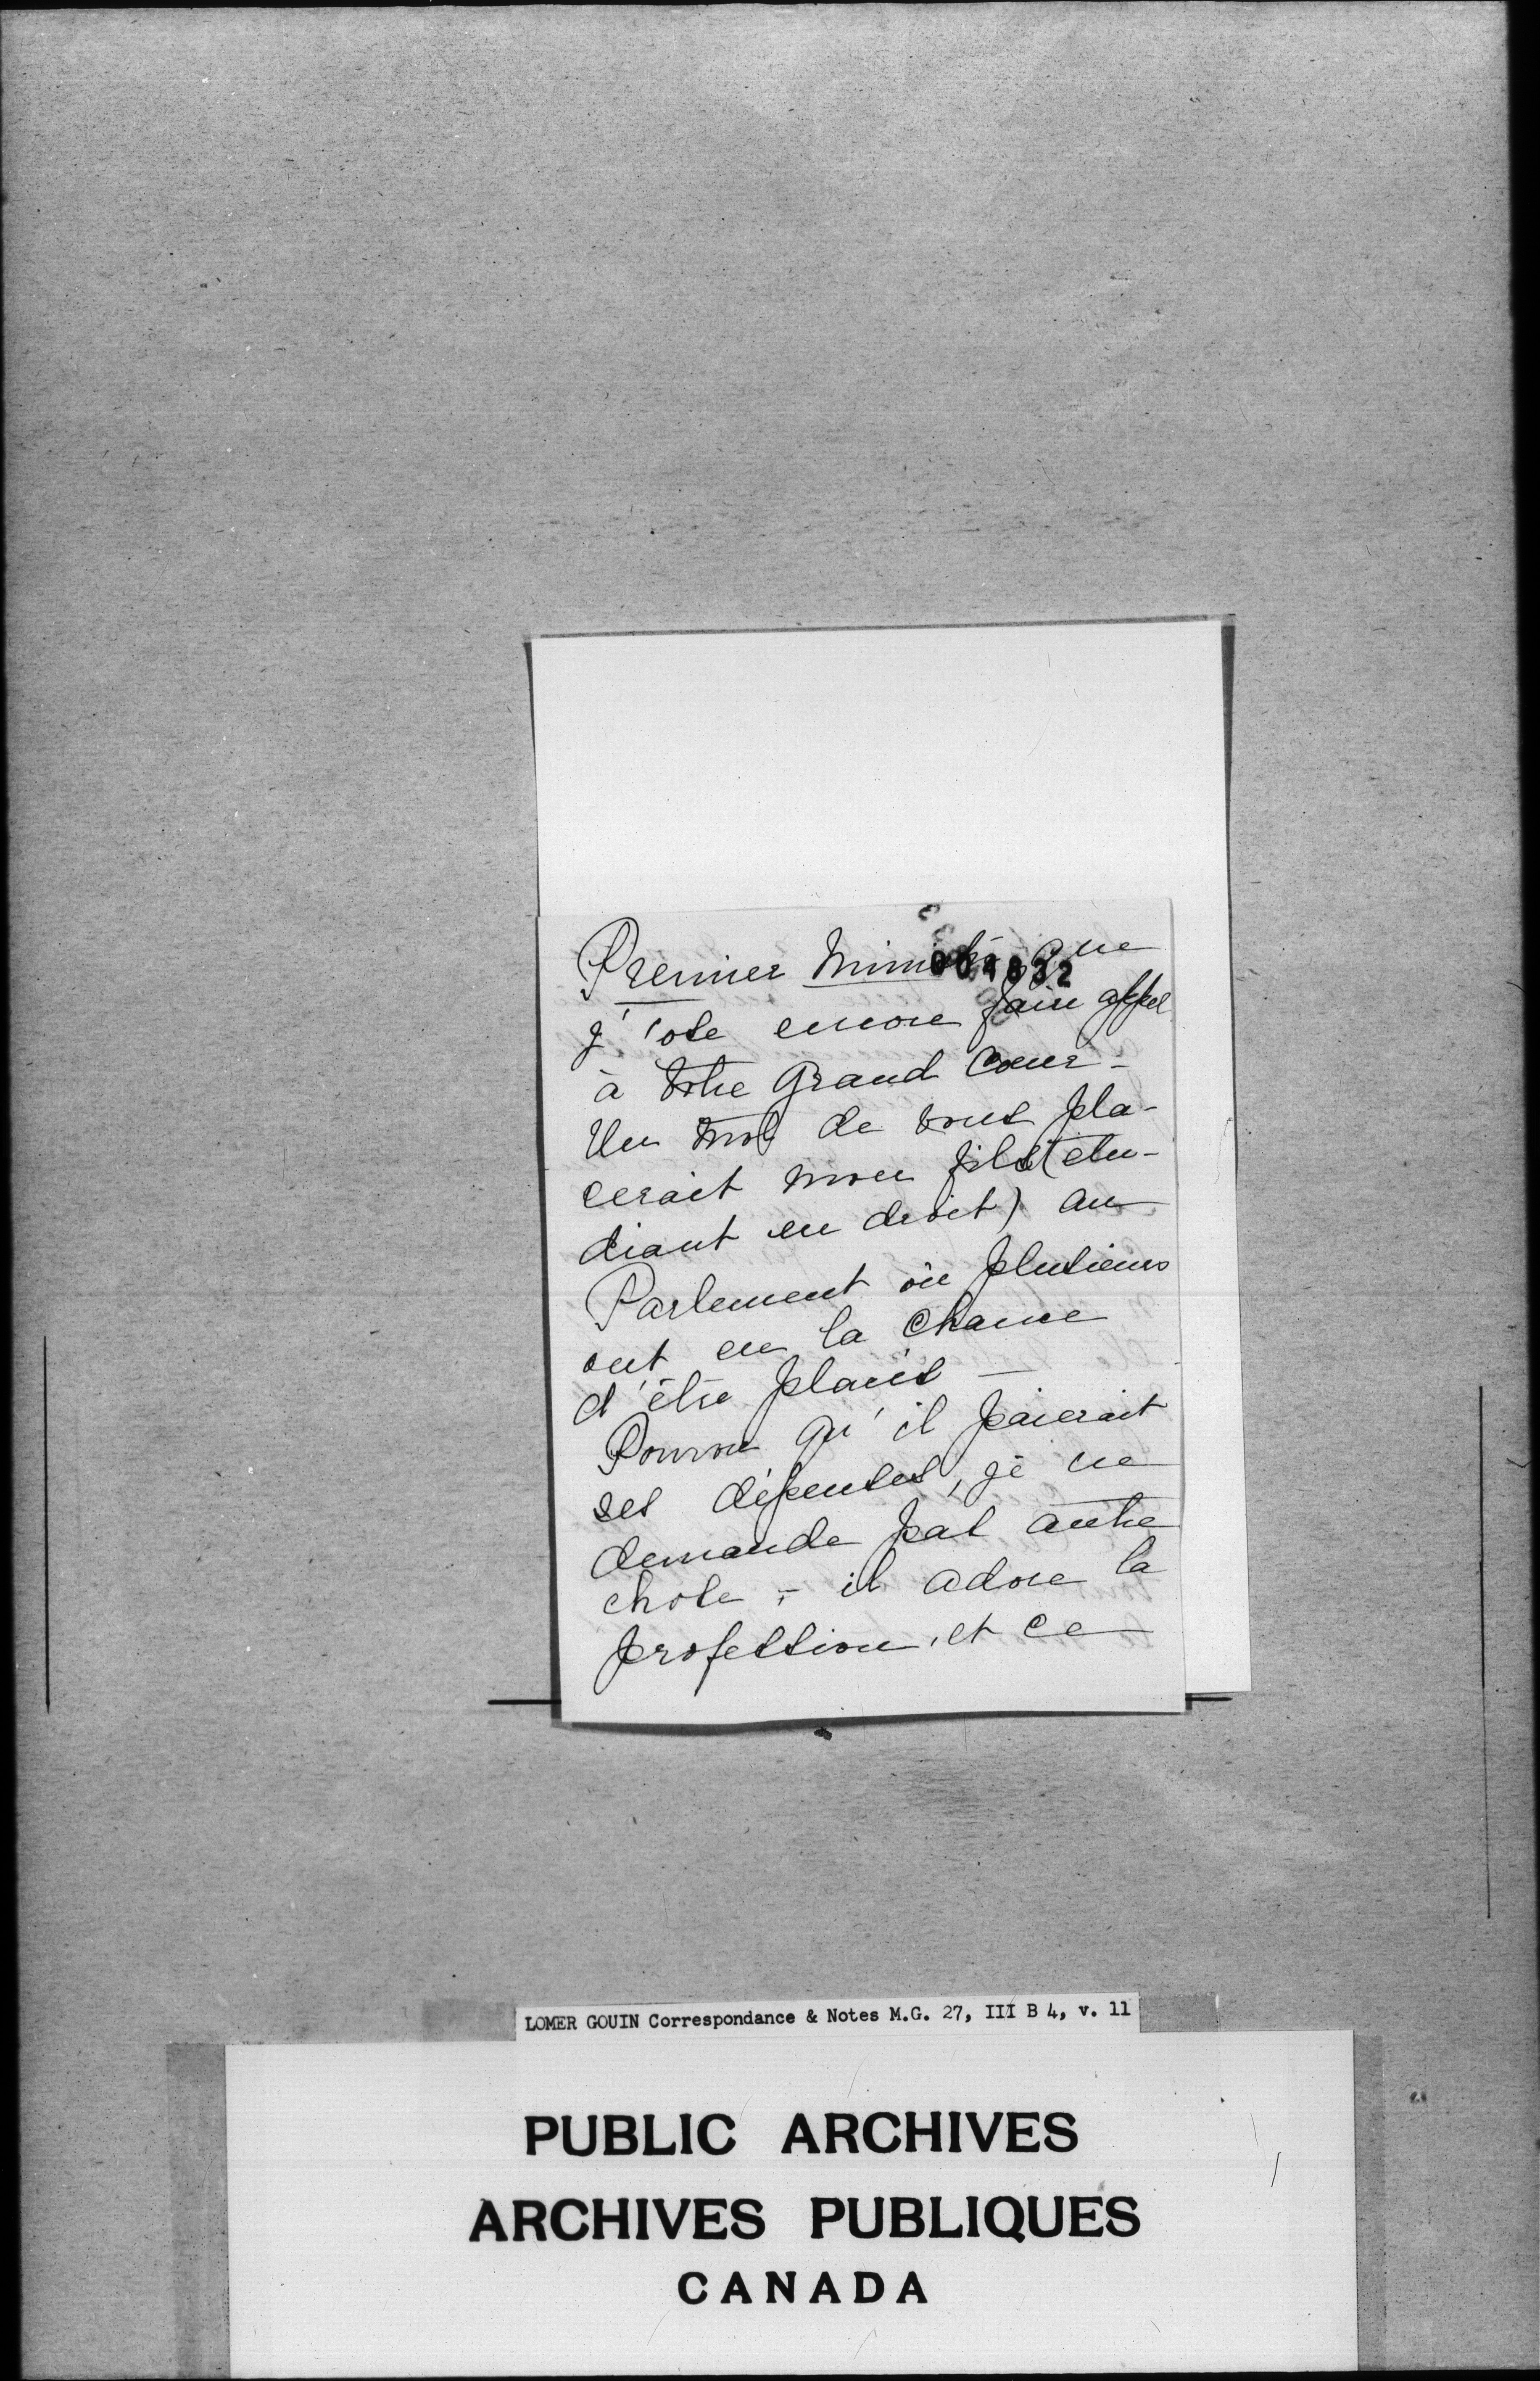 Premier Ministre que
004832
j'ose encore faire appel
à votre Grand Coeur -
Un mot de vous pla-
cerait mon fils (étu-
diant en droit) au
Parlement où plusieurs
ont eu la chance
d'être placés —
Pourvu qu'il paierait
ses dépenses, je ne
demande pas autre
chose ; - il adore la
profession, et ce
LOMER GOUIN Correspondance & Notes M.G. 27, III B 4, v. 11
PUBLIC ARCHIVES
ARCHIVES PUBLIQUES
CANADA